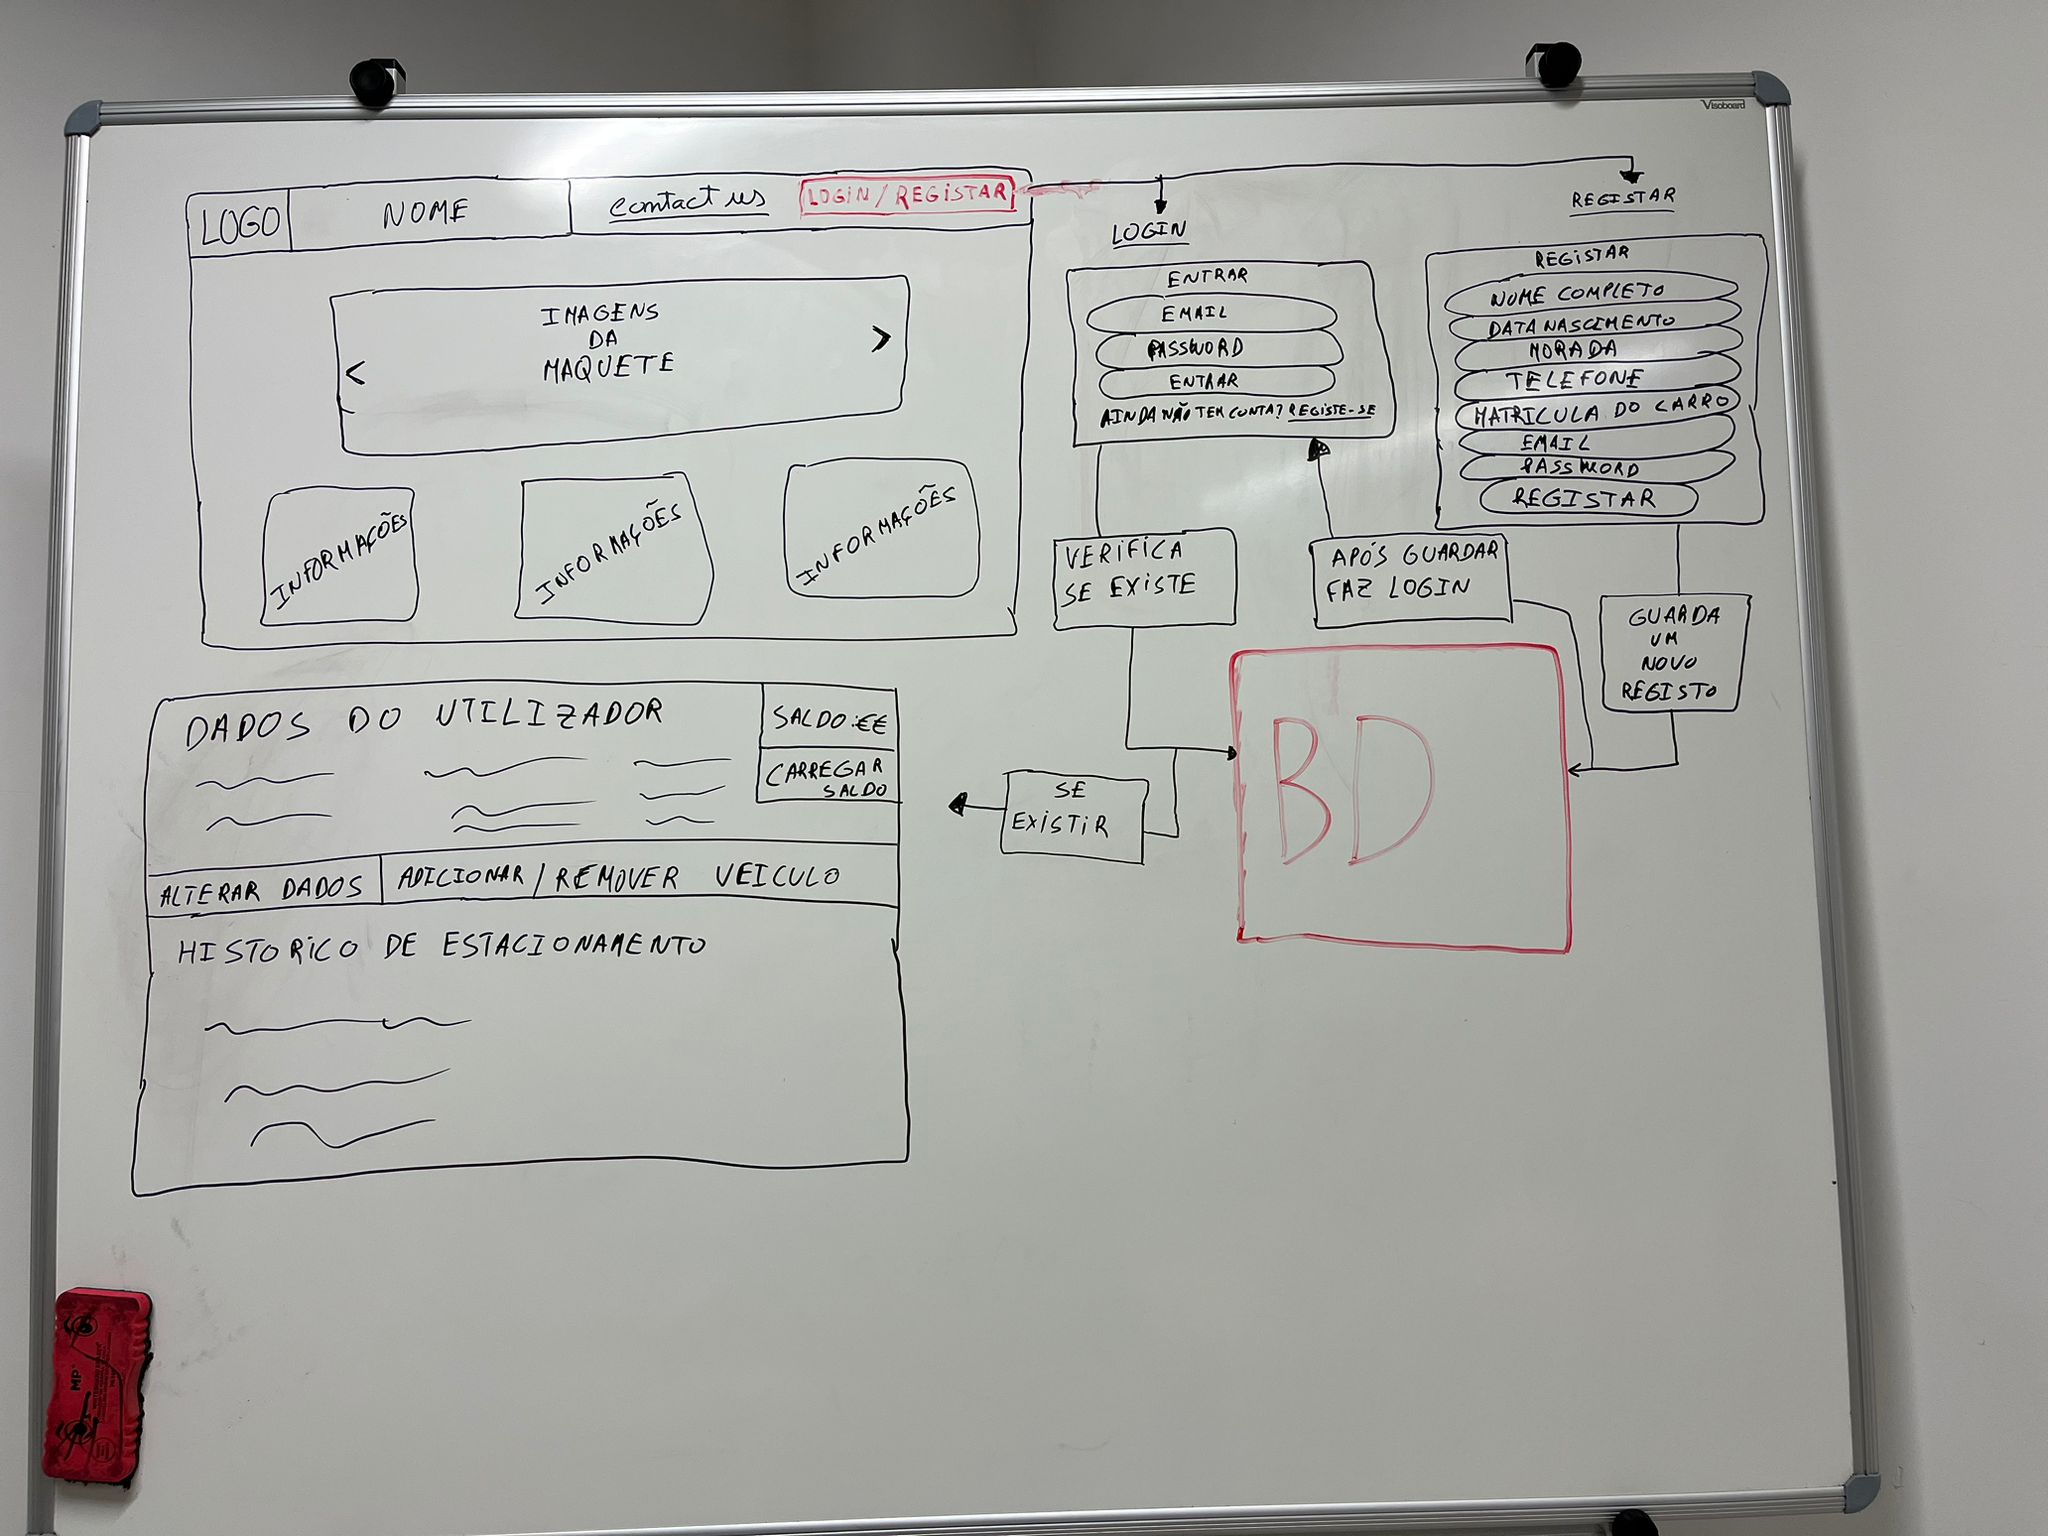 Visoboard
LOGO
NOME
contact us
LOGIN / REGISTAR
IMAGENS
DA
MAQUETE
<
>
INFORMAÇÕES
INFORMAÇÕES
INFORMAÇÕES
LOGIN
ENTRAR
EMAIL
PASSWORD
ENTRAR
AINDA NÃO TEM CONTA? REGISTE-SE
REGISTAR
REGISTAR
NOME COMPLETO
DATA NASCIMENTO
MORADA
TELEFONE
MATRICULA DO CARRO
EMAIL
PASSWORD
REGISTAR
VERIFICA
SE EXISTE
APÓS GUARDAR
FAZ LOGIN
GUARDA
UM
NOVO
REGISTO
BD
SE
EXISTIR
DADOS DO UTILIZADOR
SALDO:€€
CARREGAR
SALDO
ALTERAR DADOS
ADICIONAR / REMOVER VEICULO
HISTORICO DE ESTACIONAMENTO
MP